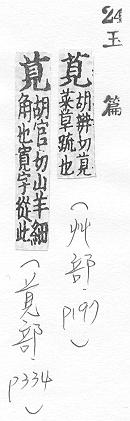 24玉篇
莧胡辨切莧菜草蔬也(艸部.p197)
萈胡官切山羊細角也寬字從此(萈部.p334)